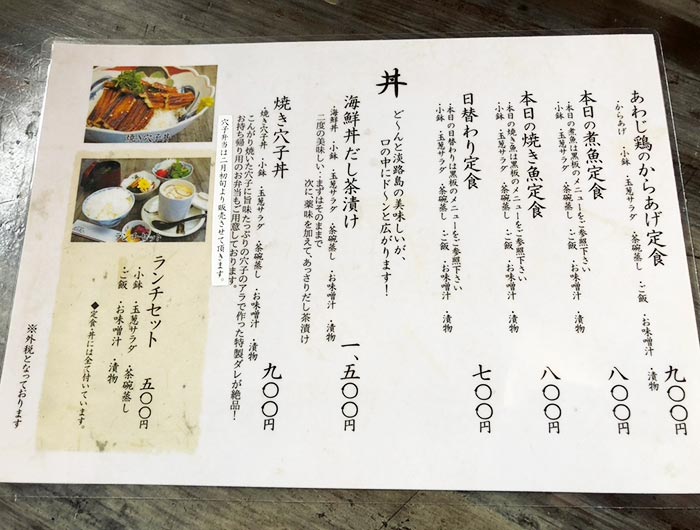 あわじ鶏のからあげ定食
・からあげ ・小鉢 ・玉葱サラダ ・茶碗蒸し ・ご飯 ・お味噌汁 ・漬物
九〇〇円
本日の煮魚定食
・本日の煮魚は黒板のメニューをご参照下さい
・小鉢 ・玉葱サラダ ・茶碗蒸し ・ご飯 ・お味噌汁 ・漬物
八〇〇円
本日の焼き魚定食
・本日の焼き魚は黒板のメニューをご参照下さい
・小鉢 ・玉葱サラダ ・茶碗蒸し ・ご飯 ・お味噌汁 ・漬物
八〇〇円
日替わり定食
・本日の日替わりは黒板のメニューをご参照下さい
・小鉢 ・玉葱サラダ ・茶碗蒸し ・ご飯 ・お味噌汁 ・漬物
七〇〇円
丼
ど〜んと淡路島の美味しいが、
口の中にド〜ンと広がります!
海鮮丼だし茶漬け
・海鮮丼 ・小鉢 ・玉葱サラダ ・茶碗蒸し ・お味噌汁 ・漬物
二度の美味しい…まずはそのままで
次に薬味を加えて、あっさりだし茶漬け
一、五〇〇円
焼き穴子丼
・焼き穴子丼 ・小鉢 ・玉葱サラダ ・茶碗蒸し ・お味噌汁 ・漬物
こんがり焼いた穴子に旨味たっぷりの穴子のアラで作った特製ダレが絶品!
お持ち帰り用のお弁当もご用意しております。
穴子弁当は二月初旬より販売させて頂きます。
九〇〇円
焼き穴子丼
ランチセット
・小鉢 ・玉葱サラダ ・茶碗蒸し
・ご飯 ・お味噌汁 ・漬物
五〇〇円
◆定食・丼には全て付いています。
※外税となっております